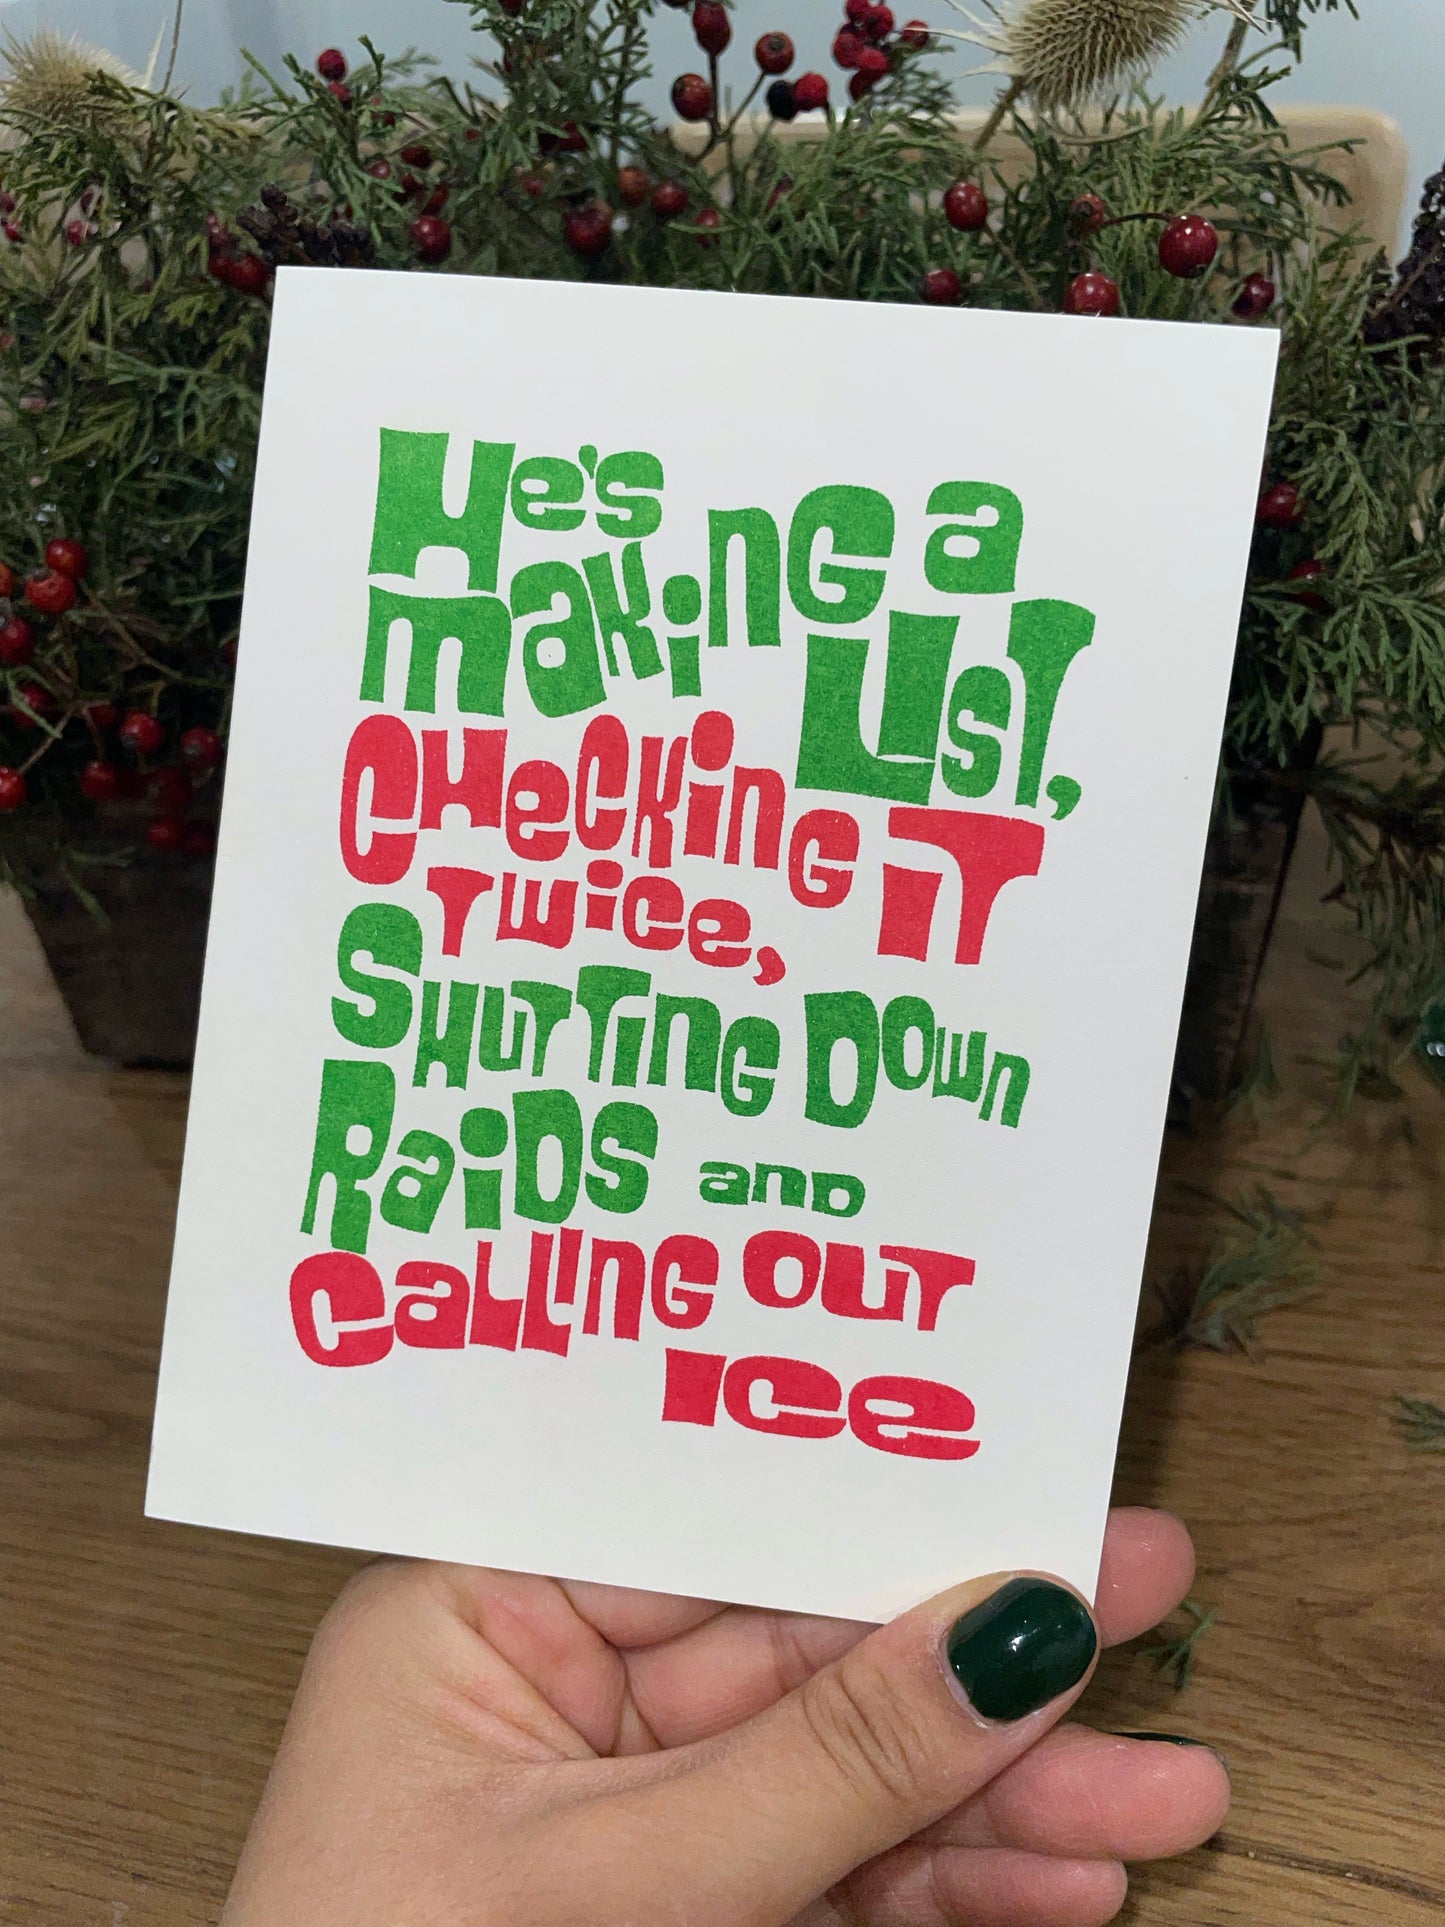 He's
making a
List,
Checking it
Twice,
Shutting Down
Raids and
Calling out
ICE